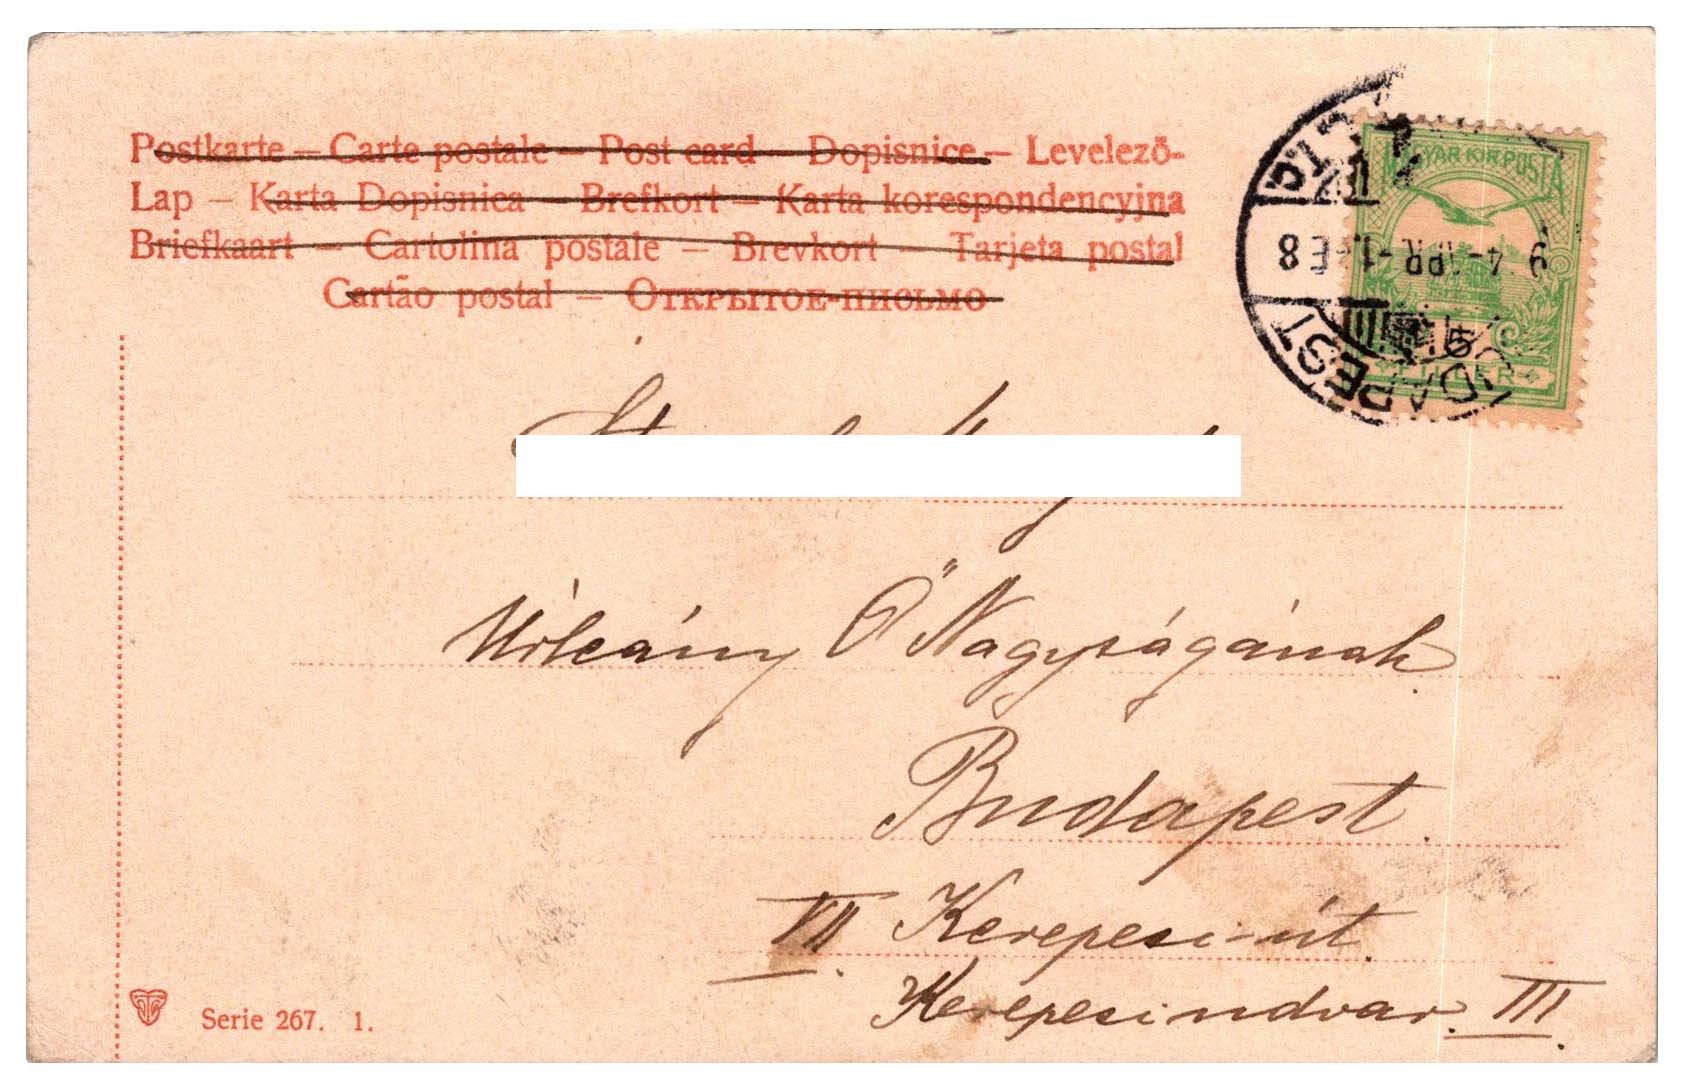 Postkarte – Carte postale – Post card – Dopisnice – Levelező-
Lap – Karta Dopisnica – Brefkort – Karta korespondencyjna
Briefkaart – Cartolina postale – Brevkort – Tarjeta postal
Cartão postal – Открытое-письмо
MAGYAR KIR. POSTA
FILLÉR
BUDAPEST
9 4 APR -1 E8
Úrleány Ő Nagyságának
Budapest.
VII. Kerepesi-út
Kerepesi udvar. III.
Serie 267. 1.